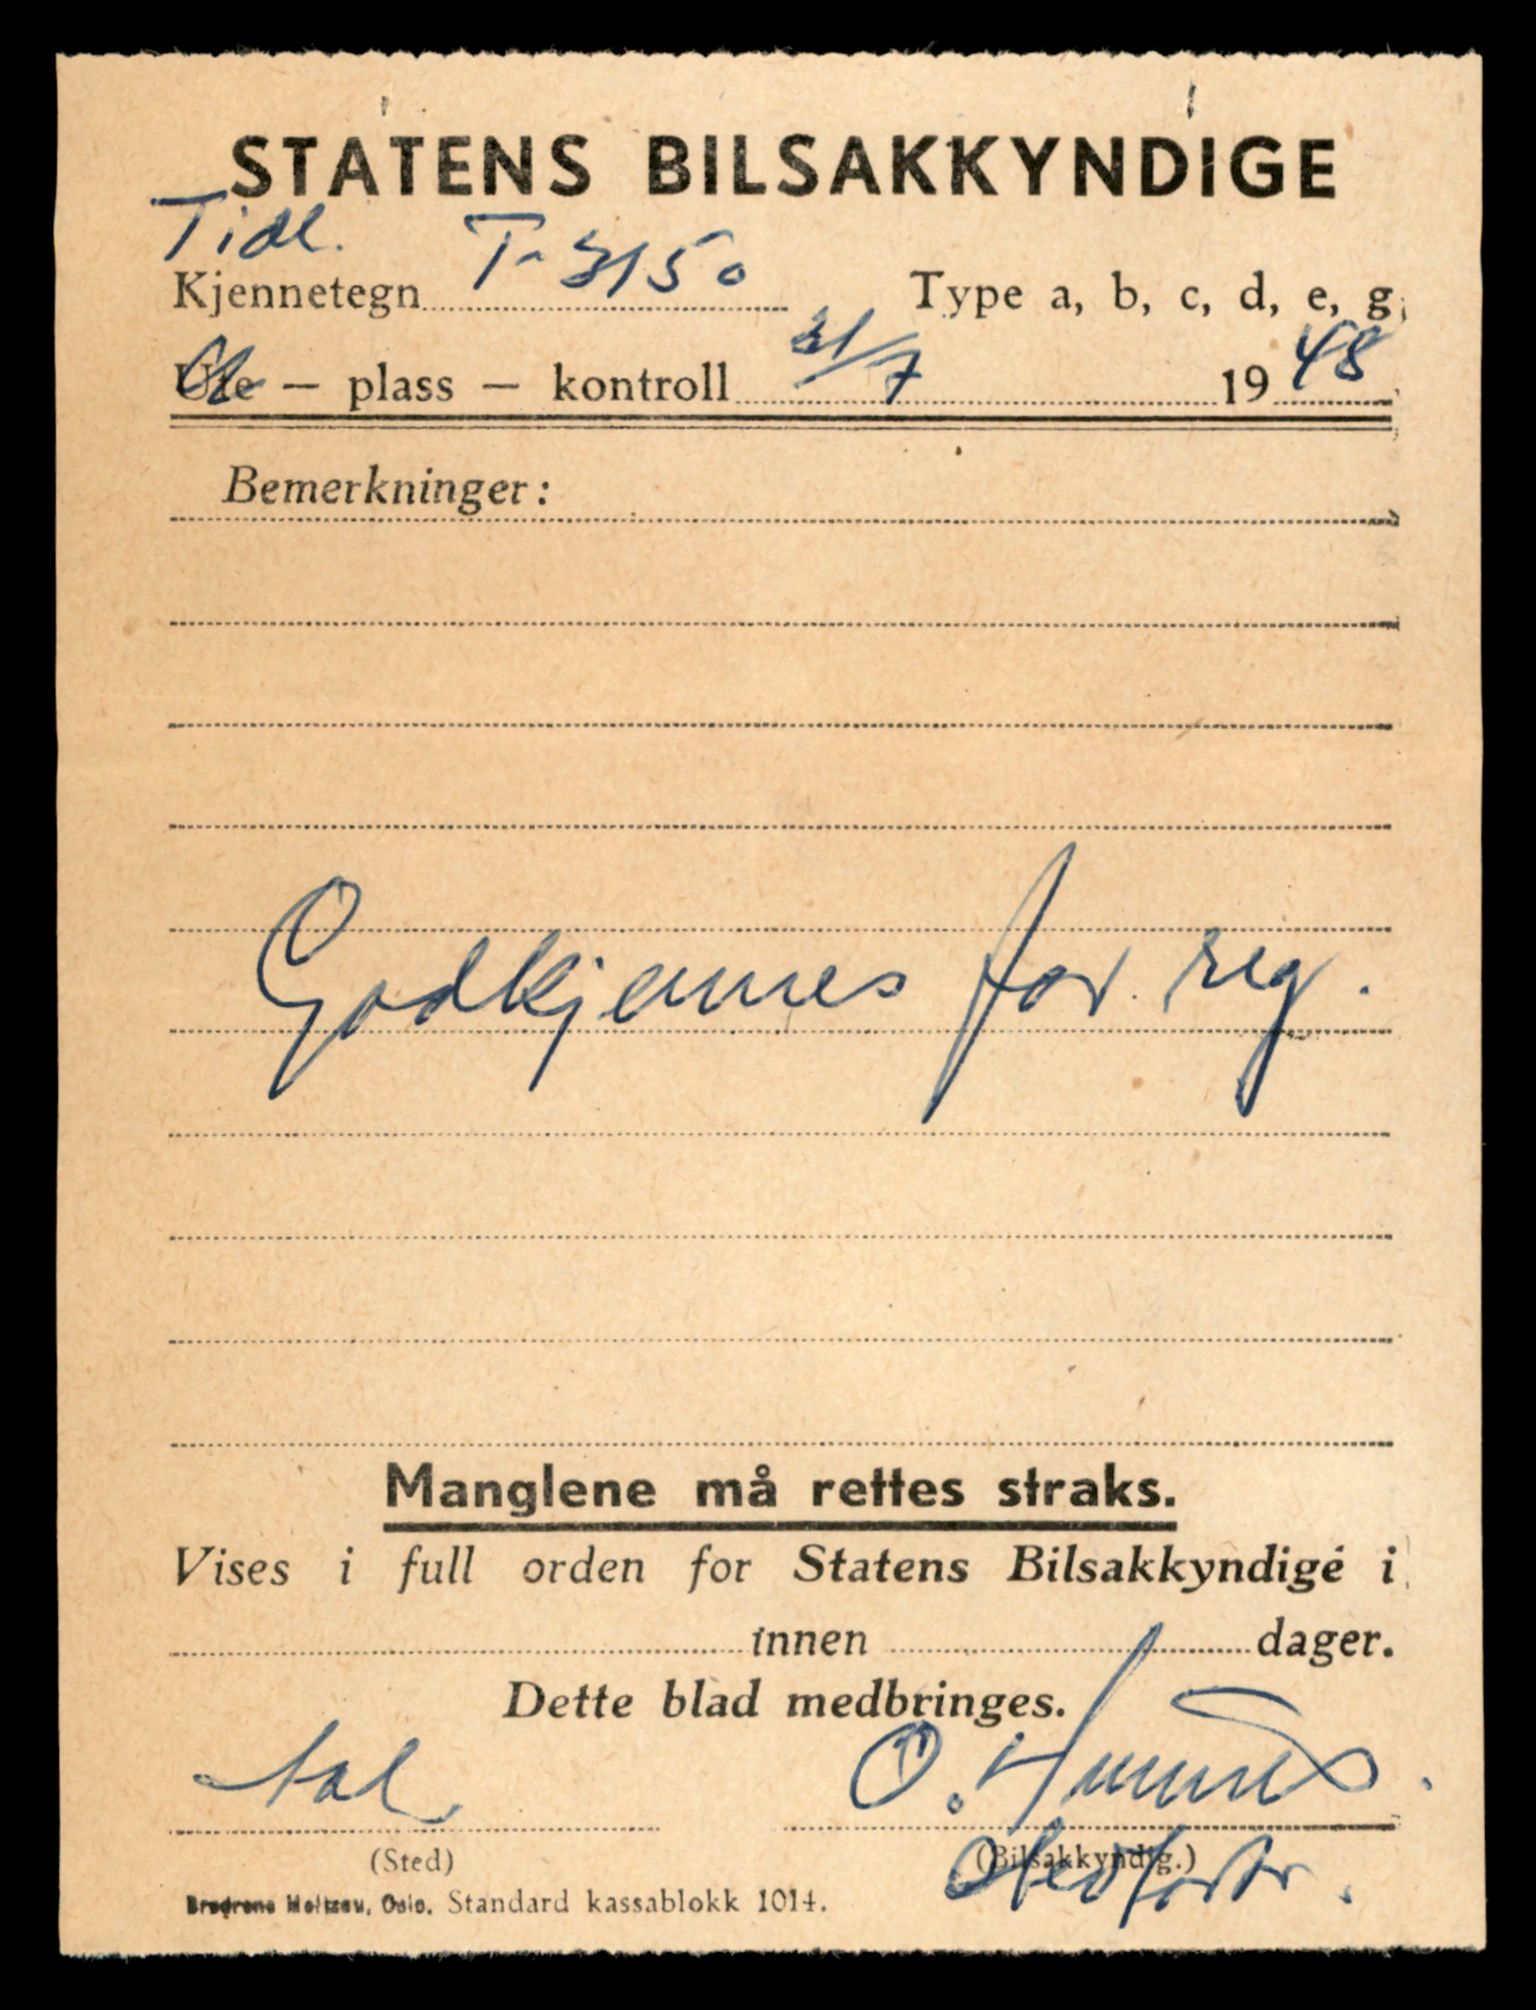 STATENS BILSAKKYNDIGE
Tidl. T-3150
Kjennetegn Type a, b, c, d, e, g,
Ute — plass — kontroll 31/7 1948
Bemerkninger:
Godkjennes for reg.
Manglene må rettes straks.
Vises i full orden for Statens Bilsakkyndige i
innen dager.
Dette blad medbringes.
O.
(Sted) (Bilsakkyndig.)
Brødrene Meltzau, Oslo. Standard kassablokk 1014.